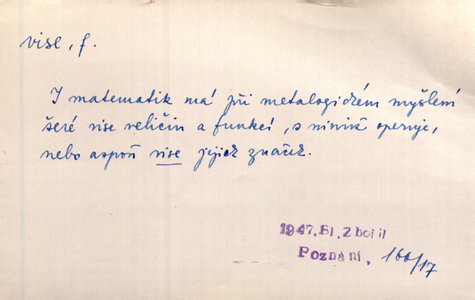 vise, f.
I matematik má při metalogickém myšlení
šeré vise veličin a funkcí, s nimiž operuje,
nebo aspoň vise jejich značek.
1947, Bl. Zbořil
Poznání, 166/17